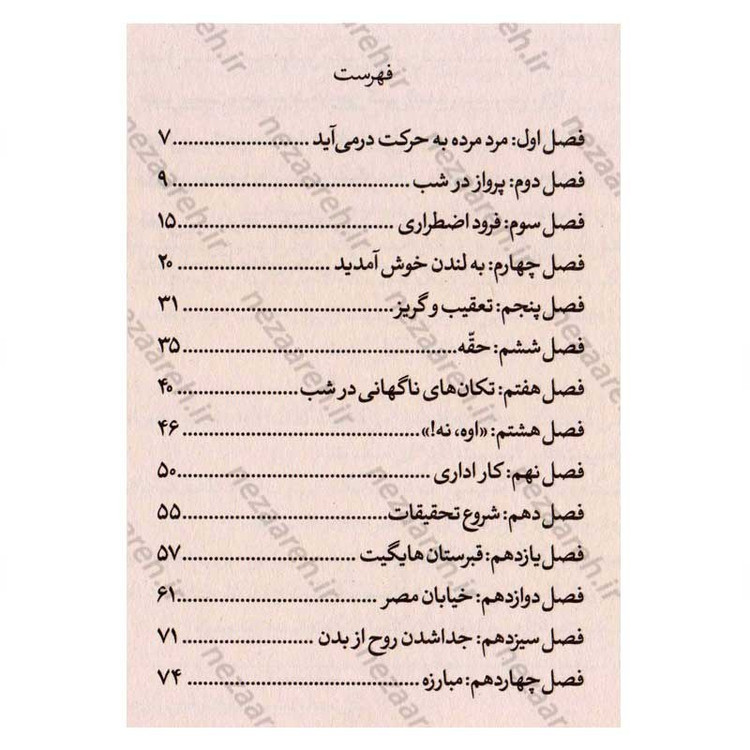 فهرست
فصل اول: مرد مرده به حرکت درمی‌آید ........................ ۷
فصل دوم: پرواز در شب ........................ ۹
فصل سوم: فرود اضطراری ........................ ۱۵
فصل چهارم: به لندن خوش آمدید ........................ ۲۰
فصل پنجم: تعقیب و گریز ........................ ۳۱
فصل ششم: حقّه ........................ ۳۵
فصل هفتم: تکان‌های ناگهانی در شب ........................ ۴۰
فصل هشتم: «اوه، نه!» ........................ ۴۶
فصل نهم: کار اداری ........................ ۵۰
فصل دهم: شروع تحقیقات ........................ ۵۵
فصل یازدهم: قبرستان هایگیت ........................ ۵۷
فصل دوازدهم: خیابان مصر ........................ ۶۱
فصل سیزدهم: جداشدن روح از بدن ........................ ۷۱
فصل چهاردهم: مبارزه ........................ ۷۴
nezaareh.ir